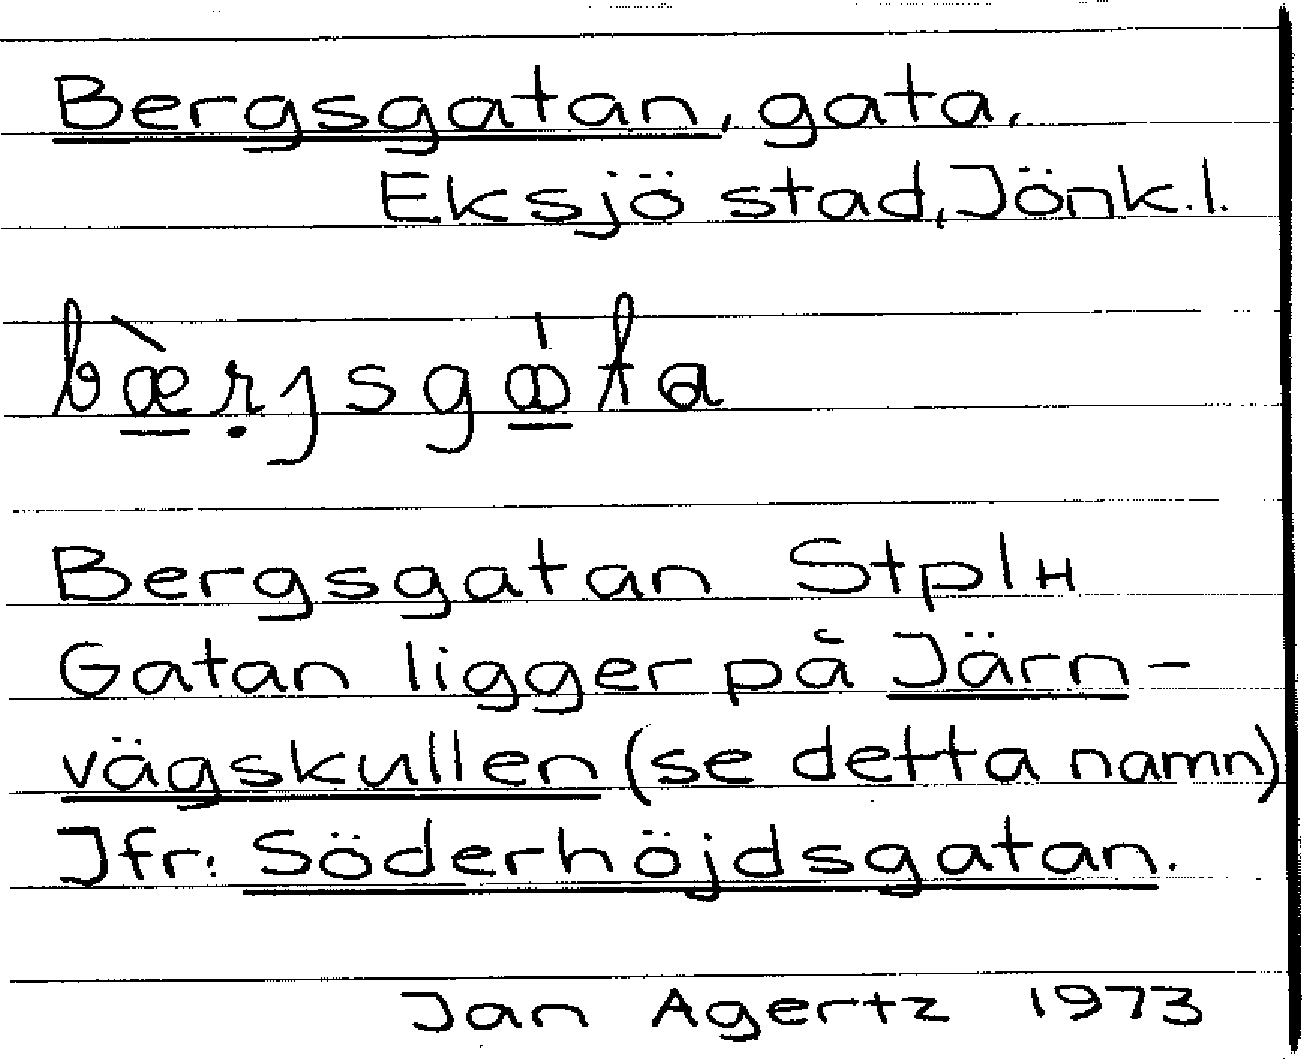 Bergsgatan, gata,
Eksjö stad, Jönk.l.
bæ̀rjsgɑ̍ta
Bergsgatan StplH
Gatan ligger på Järn-
vägskullen (se detta namn)
Jfr: Söderhöjdsgatan.
Jan Agertz 1973